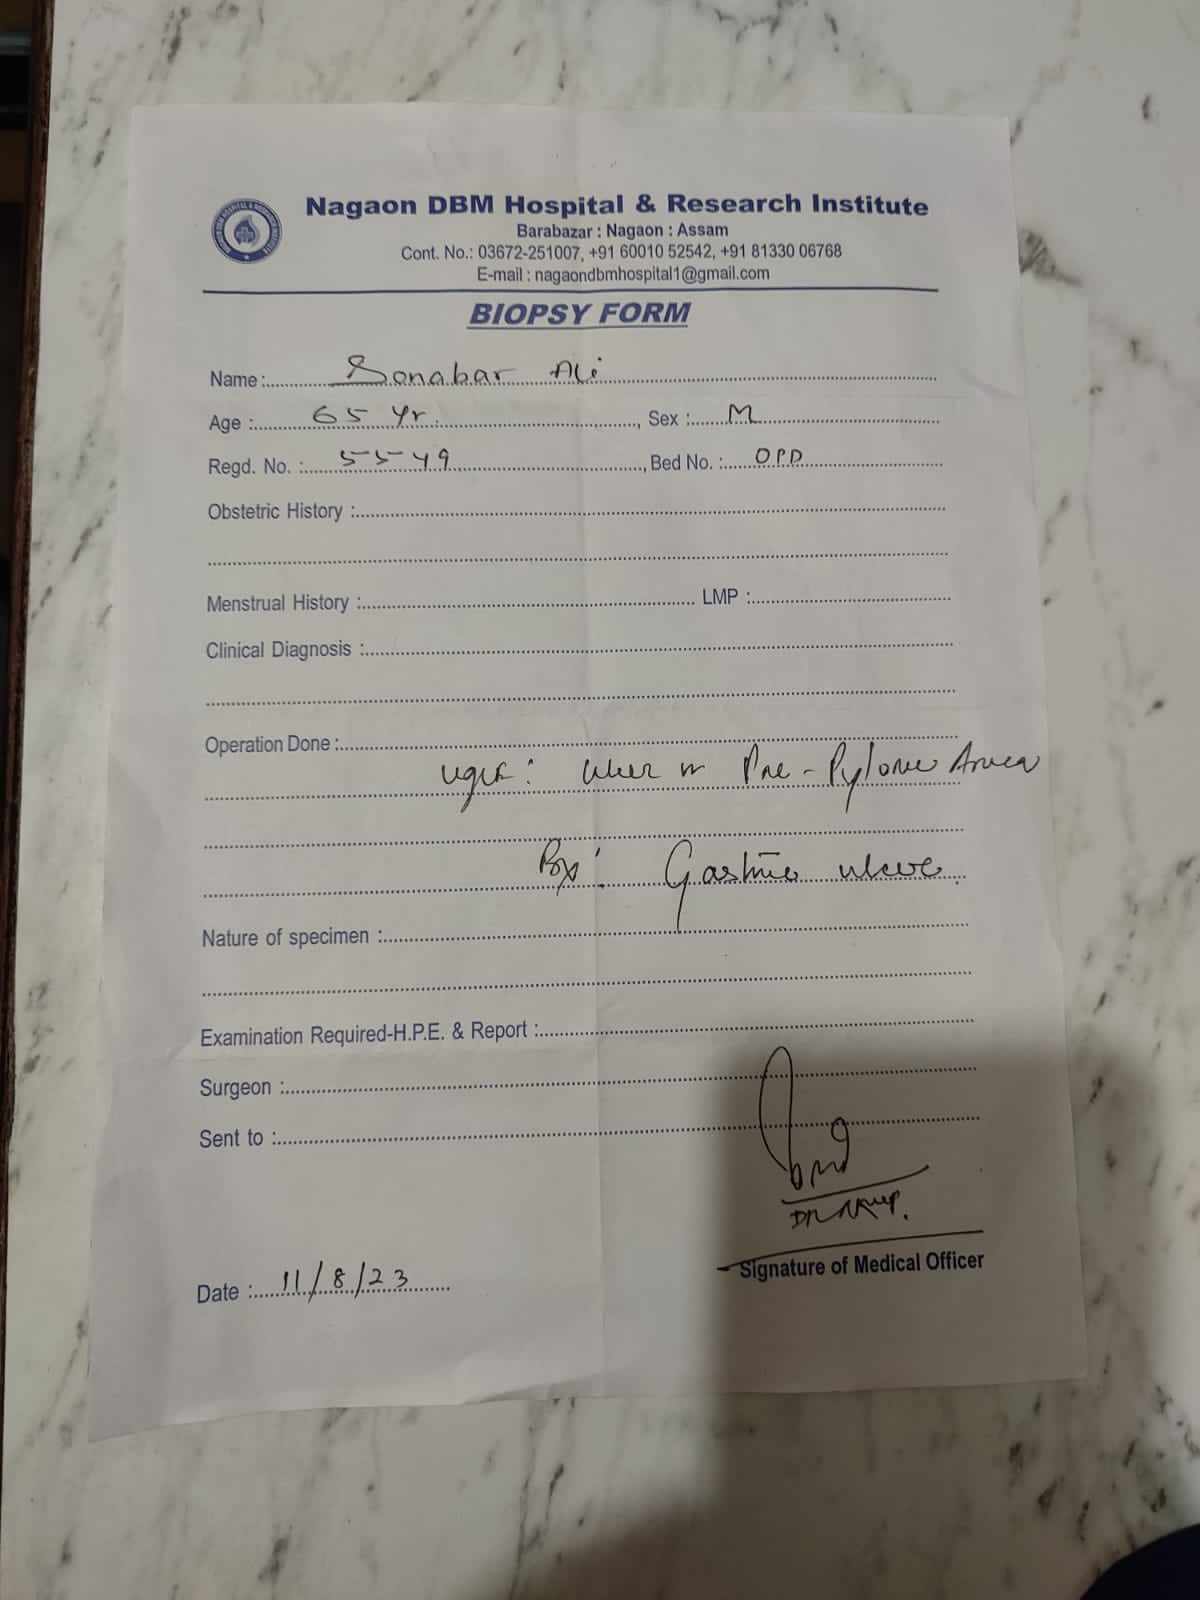 Nagaon DBM Hospital & Research Institute
Barabazar : Nagaon : Assam
Cont. No.: 03672-251007, +91 60010 52542, +91 81330 06768
E-mail : nagaondbmhospital1@gmail.com
BIOPSY FORM
Name : Sonabar Ali
Age : 65 Yr. , Sex : M
Regd. No. : 5549 , Bed No. : OPD
Obstetric History :
Menstrual History : LMP :
Clinical Diagnosis :
Operation Done :
Ulcer in Pre-Pyloric Area
Bx: Gastric ulcer.
Nature of specimen :
Examination Required-H.P.E. & Report :
Surgeon :
Sent to :
Date : 11/8/23
Signature of Medical Officer